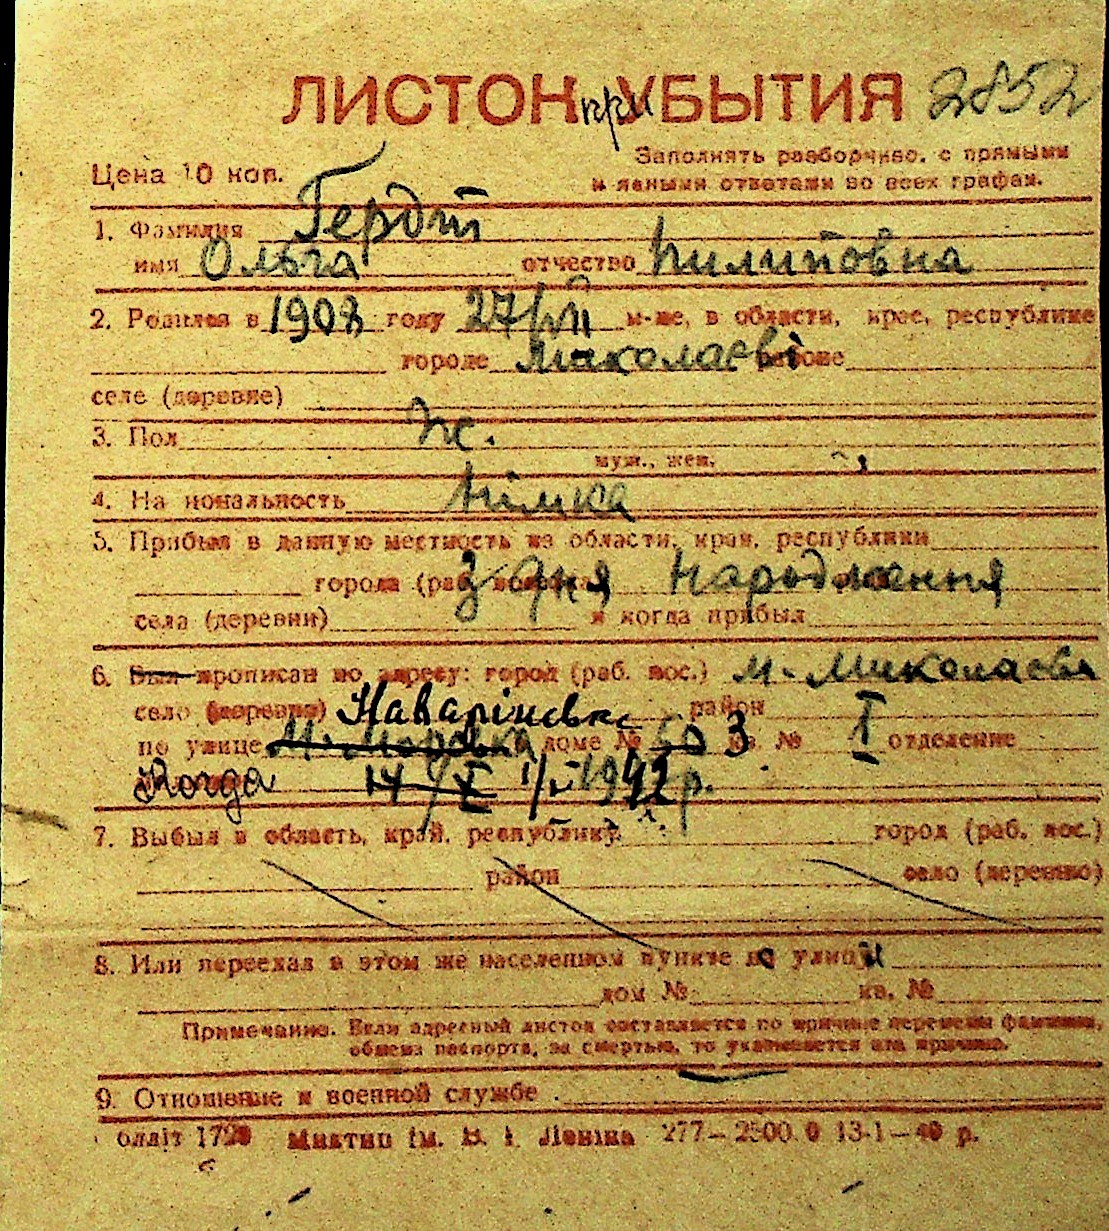 ЛИСТОК при УБЫТИЯ 2852
Цена 10 коп.
Заполнять разборчиво, с прямыми
и ясными ответами во всех графах.
1. Фамилия Гердт
имя Ольга отчество Пилиповна
2. Родился в 1908 году 27/VII м-це, в области, крае, республике
городе Миколаєві районе
селе (деревне)
3. Пол Ж.
муж., жен.
4. Национальность німка
5. Прибыл в данную местность из области, края, республики
города (раб. поселка) З дня народження
села (деревни) и когда прибыл
6. Был прописан по адресу: город (раб. пос.) м. Миколаєві
село (деревня) Наваріновка район
по улице доме № 50 3 кв. № I отделение
Когда 14/X 1/V 1942 р.
7. Выбыл в область, край, республику город (раб. пос.)
район село (деревню)
8. Или переехал в этом же населенном пункте по улице
дом № кв. №
Примечание. Если адресный листок составляется по причине перемены фамилии,
обмена паспорта, за смертью, то указывается эта причина.
9. Отношение к военной службе
1720 Миктип ім. В. І. Леніна 277—2500.0 13-1—40 р.